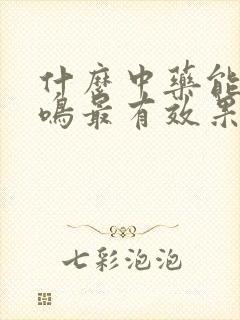 什麽中藥能
鳴最有效果
七彩泡泡